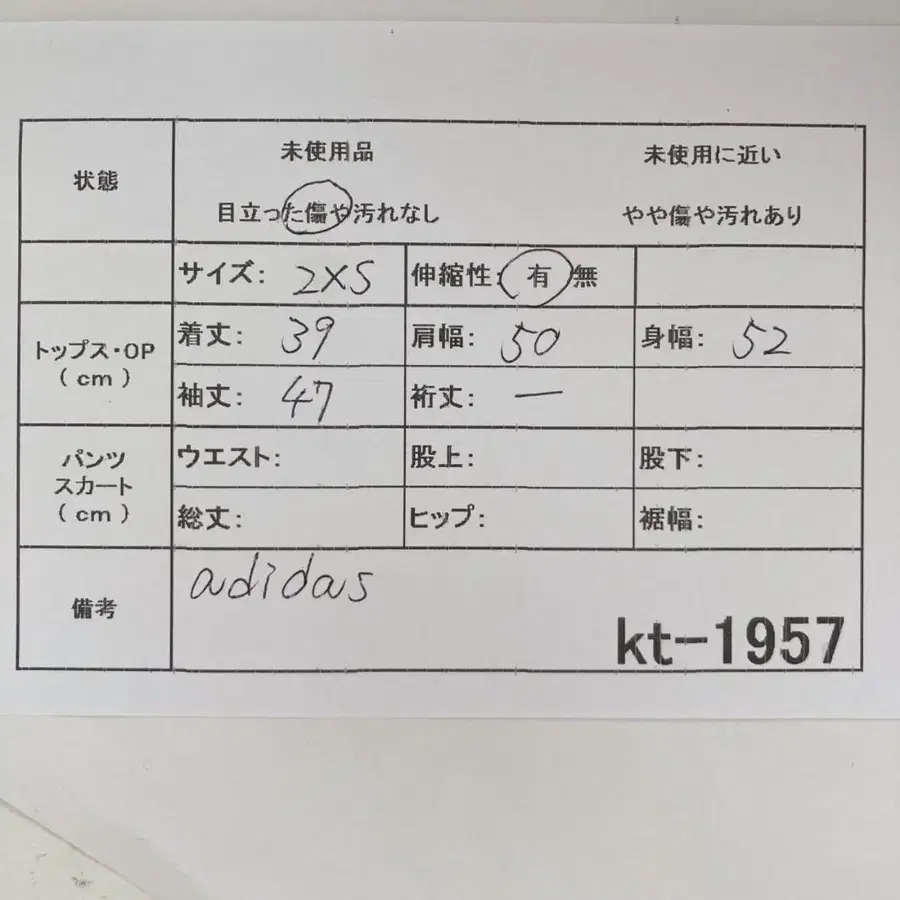 状態
未使用品 未使用に近い
目立った傷や汚れなし やや傷や汚れあり
サイズ: 2XS 伸縮性: 有 無
トップス・OP
(cm)
着丈: 39 肩幅: 50 身幅: 52
袖丈: 47 裄丈: ー
パンツ
スカート
(cm)
ウエスト: 股上: 股下:
総丈: ヒップ: 裾幅:
備考
adidas
kt-1957